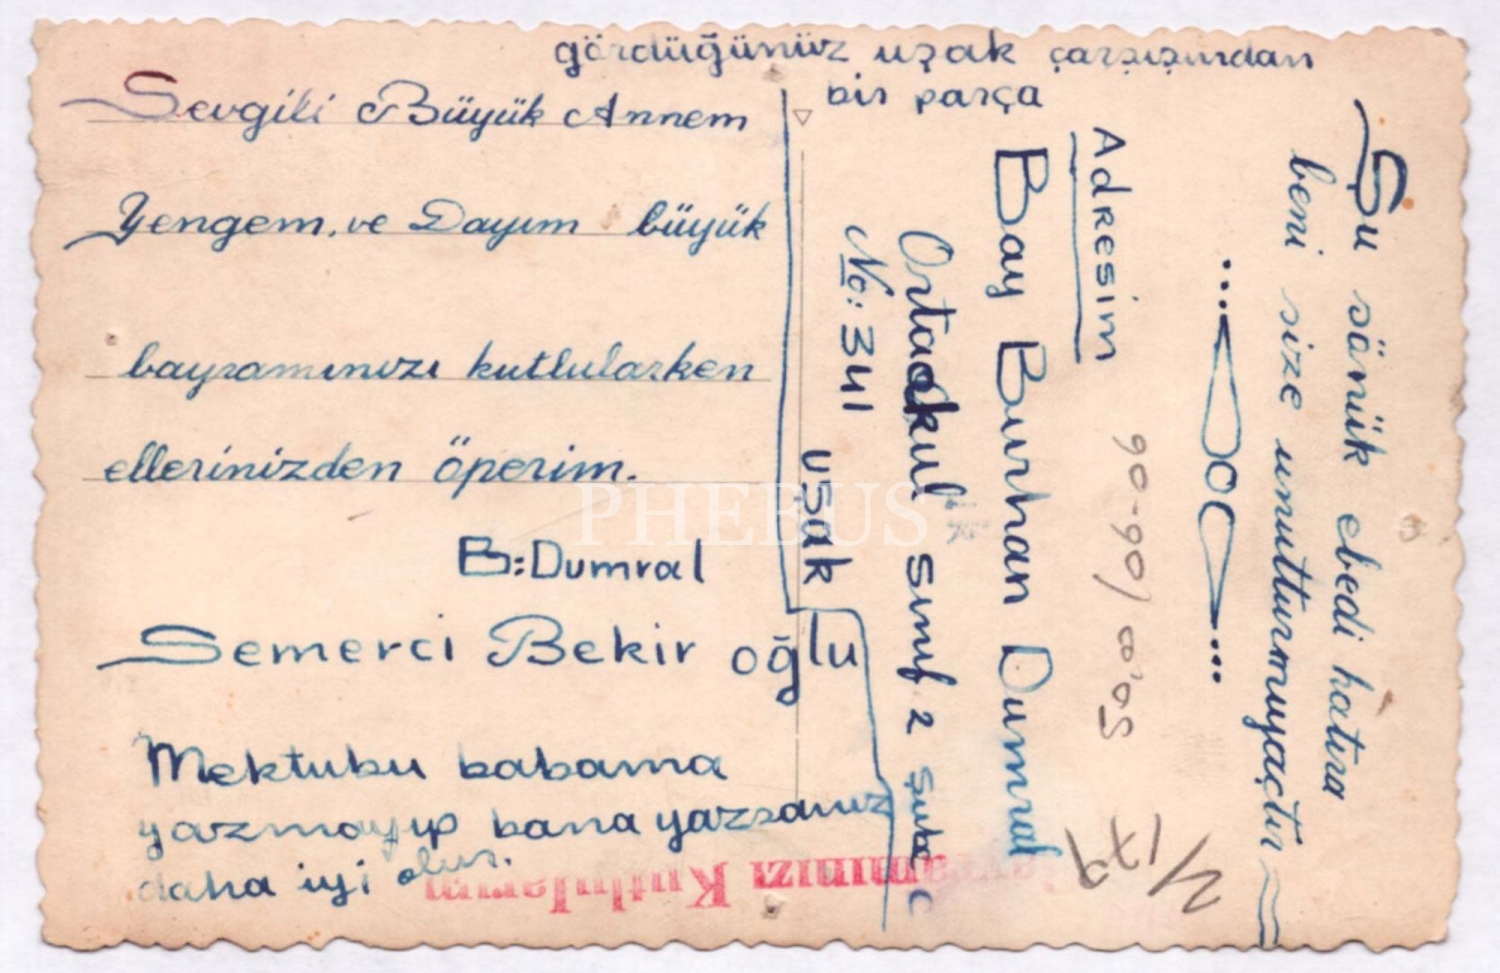 gördüğünüz uşak çarşısından
bir parça
Sevgili Büyük Annem
Yengem, ve Dayım büyük
bayramınızı kutlularken
ellerinizden öperim.
B:Dumral
Semerci Bekir oğlu
Mektubu babama
yazmayıp bana yazsanız
daha iyi olur.
Şu sönük ebedi hatıra
beni size unutturmıyaçtır
Adresim
Bay Burhan Dumral
Ortaokul sınıf 2 şube C
No: 341
uşak
ayramınızı Kutlularım
PHEBUS